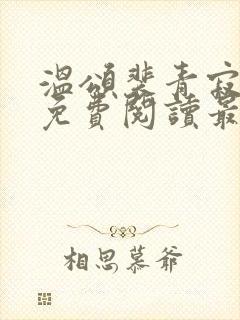 溫頌裴青寂
免費閱讀最
相思慕爺